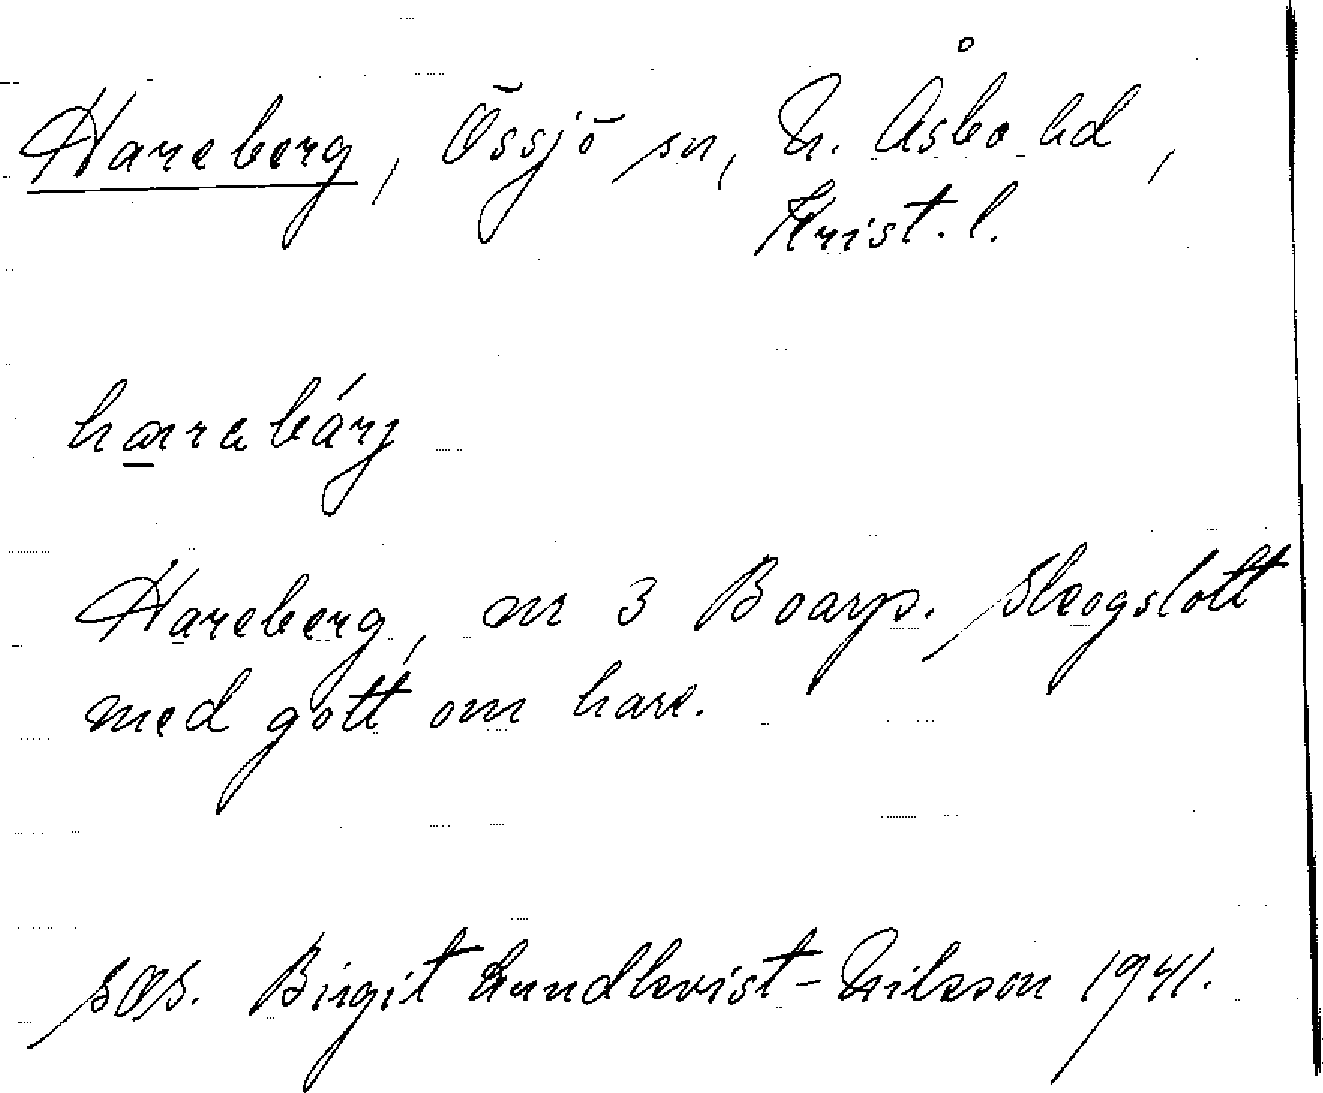 Hareberg, Össjö sn, N. Åsbo hd,
Krist. l.
Hareberg, nr 3 Boarp. Skogslott
med gott om hare.
Birgit Lundkvist-Nilsson 1941.